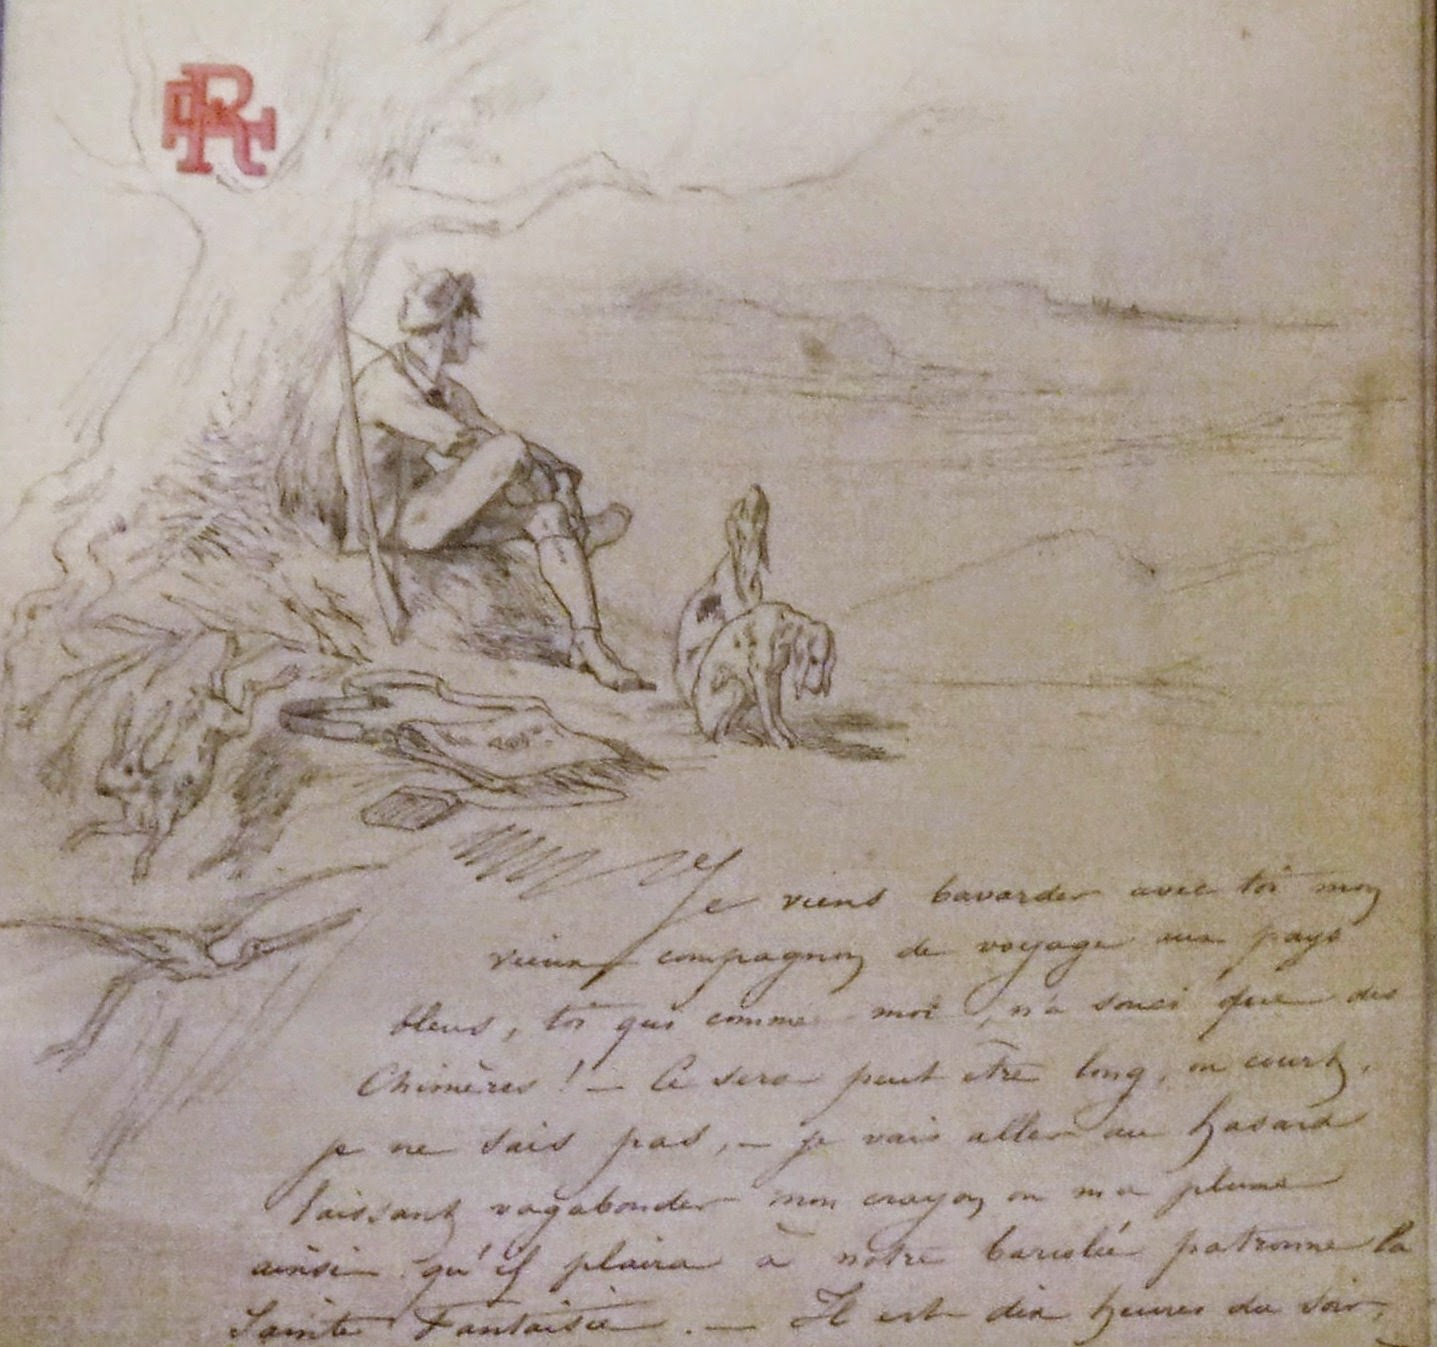 Je viens bavarder avec toi mon
vieux compagnon de voyage aux pays
bleus, toi qui comme moi, n'a souci que des
Chimères ! — Ce sera peut être long, ou court,
je ne sais pas, — je vais aller au hasard
laissant vagabonder mon crayon ou ma plume
ainsi qu'il plaira à notre bariolée patronne la
Sainte Fantaisie. — Il est dix heures du soir,